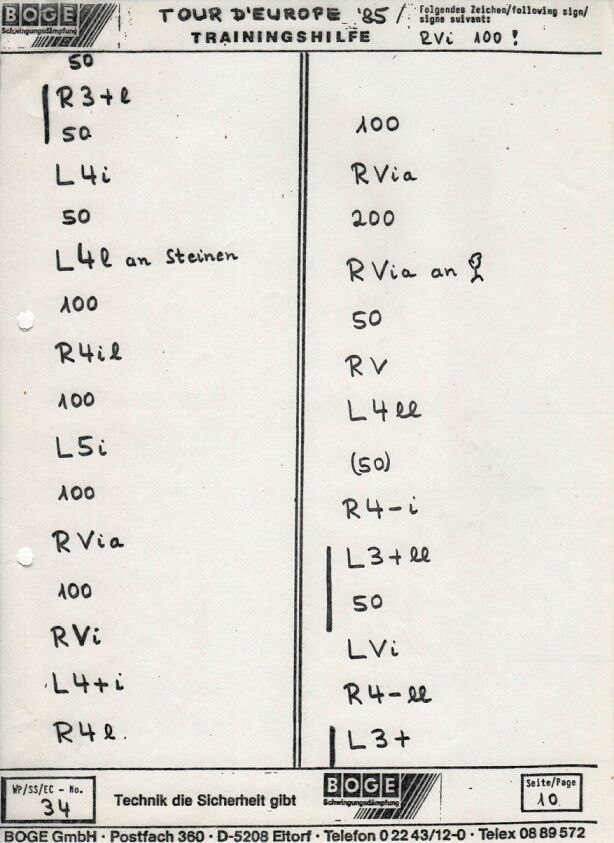 BOGE
Schwingungsdämpfung
TOUR D'EUROPE '85 /
TRAININGSHILFE
folgendes Zeichen/following sign/
signe suivant:
RVi 100 !
50
R3+l
50
L4i
50
L4l an Steinen
100
R4il
100
L5i
100
RVia
100
RVi
L4+i
R4l
100
RVia
200
RVia an
50
RV
L4ll
(50)
R4-i
L3+ll
50
LVi
R4-ll
L3+
WP/SS/EC - No.
34
Technik die Sicherheit gibt
BOGE
Schwingungsdämpfung
Seite/Page
10
BOGE GmbH · Postfach 360 · D-5208 Eitorf · Telefon 0 22 43/12-0 · Telex 08 89 572